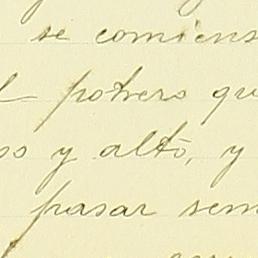 se comiens
potrero qu
os y alto, y
pasar sem